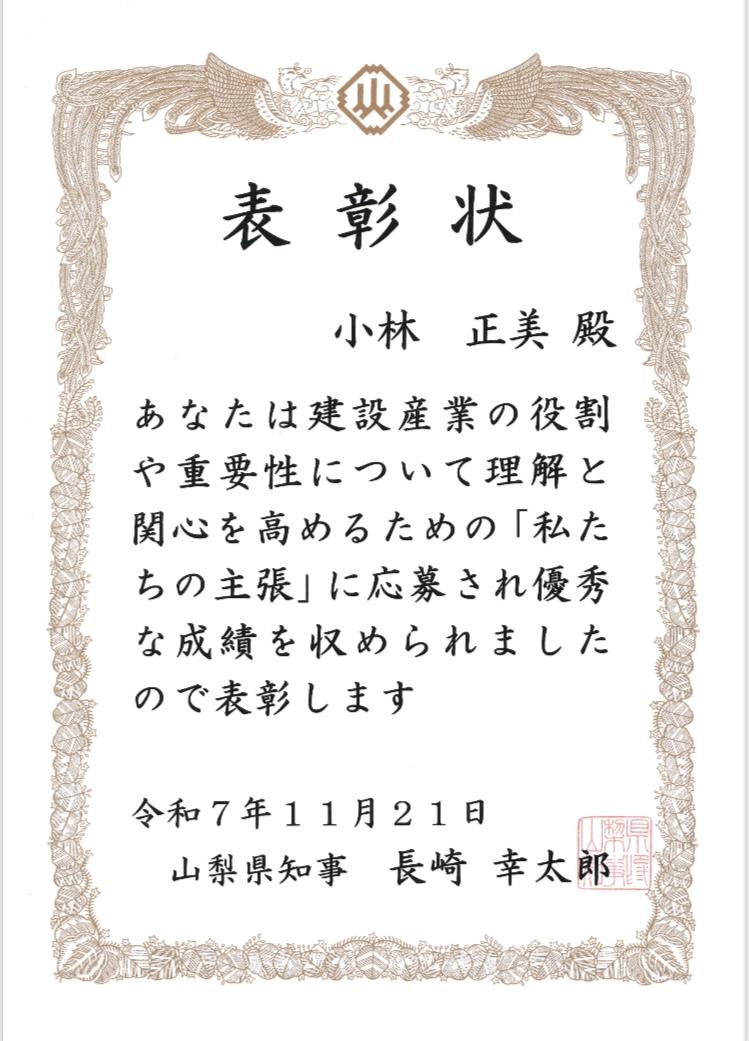 表彰状
小林　正美 殿
あなたは建設産業の役割
や重要性について理解と
関心を高めるための「私た
ちの主張」に応募され優秀
な成績を収められました
ので表彰します
令和７年１１月２１日
山梨県知事　長崎 幸太郎